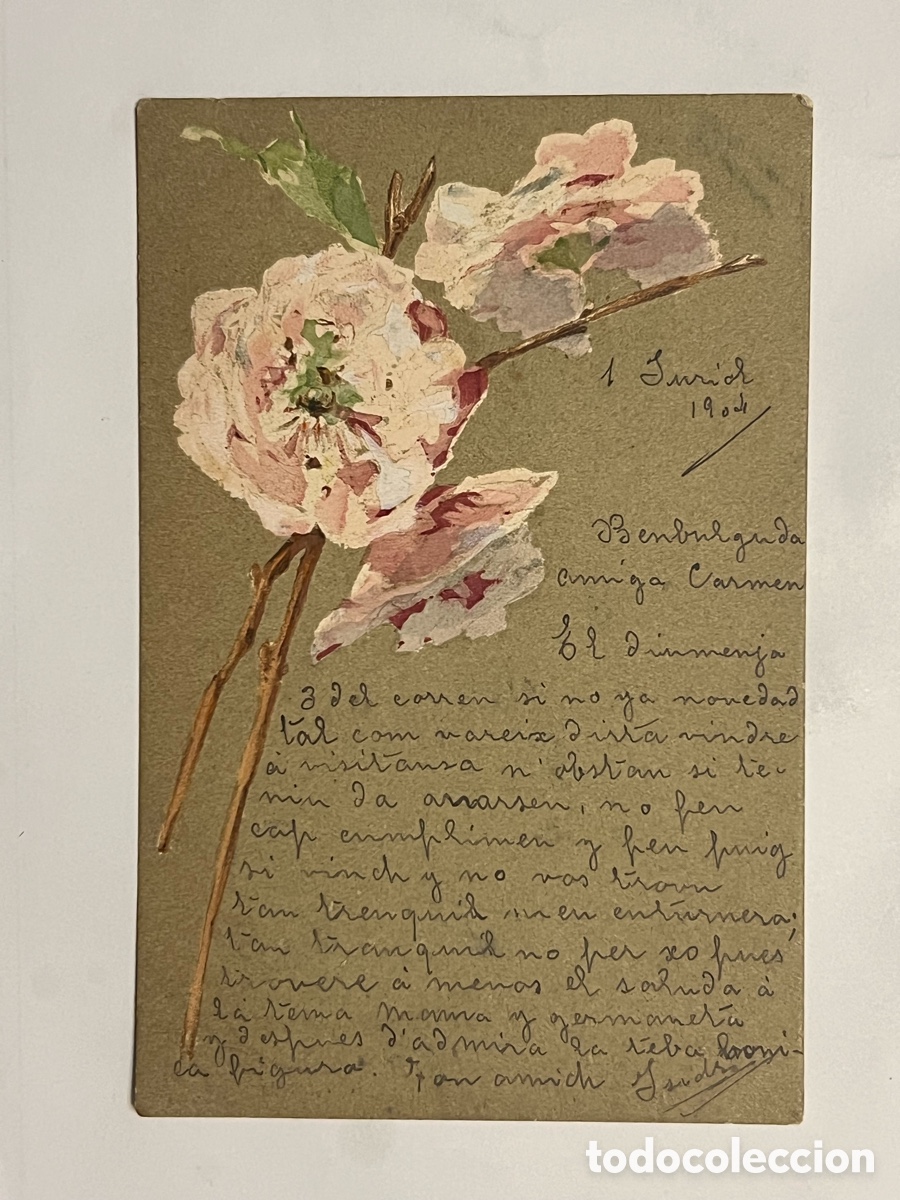 1 Juriol
1904
Benbulguda
amiga Carmen
El diumenja
3 del corren si no ya novedad
tal com vareix dirta vindre
á visitansa n'obstan si te-
niu da anarsen, no feu
cap cumplimen y feu puig
si vinch y no vos trovu
tan trenquil men enturnera;
tan tranquil no per xo pues
trovere á menos el saluda á
la tema Mama y germaneta
y despues d'admira la teba boni-
ca figura. Ton amich Isidro
todocoleccion